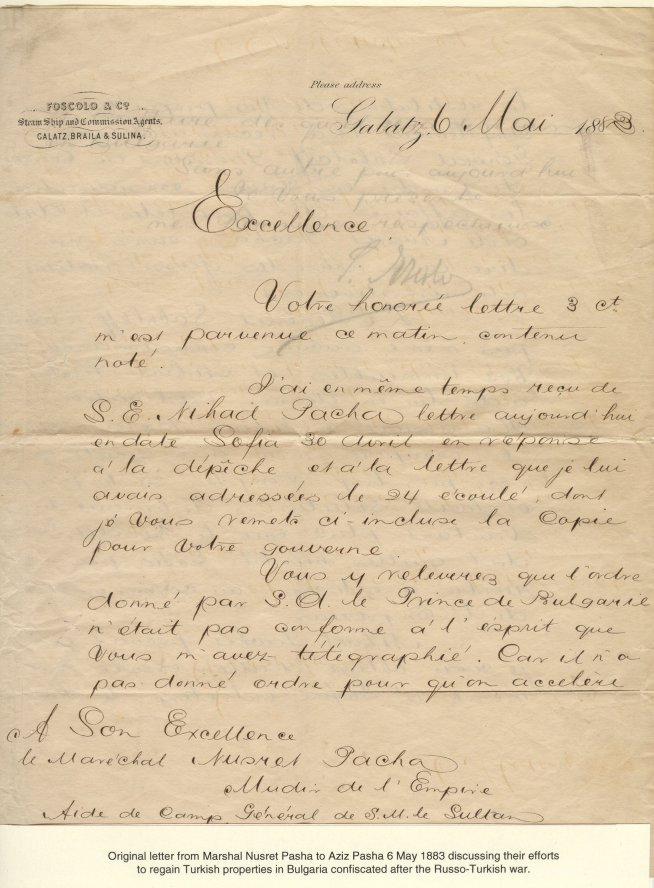 Please address
FOSCOLO & Cº
Steam Ship and Commission Agents.
GALATZ, BRAILA & SULINA.
Galatz, 6 Mai 1883.
Excellence
Votre honorée lettre 3 ct.
m'est parvenue ce matin, contenu
noté.
J'ai en même temps reçu de
S. E. Nihad Pacha lettre aujourd'hui
en date Sofia 30 Avril en réponse
à la dépêche et à la lettre que je lui
avais adressées le 24 écoulé, dont
je Vous remets ci-incluse la Copie
pour Votre gouverne.
Vous y releverez que l'ordre
donné par S. A. le Prince de Bulgarie
n'était pas conforme à l'esprit que
Vous m'avez télégraphié. Car il n'a
pas donné ordre pour qu'on accelère
A Son Excellence
le Maréchal Nusret Pacha
Mudir de l'Empire
Aide de Camp Général de S. M. le Sultan
Original letter from Marshal Nusret Pasha to Aziz Pasha 6 May 1883 discussing their efforts
to regain Turkish properties in Bulgaria confiscated after the Russo-Turkish war.